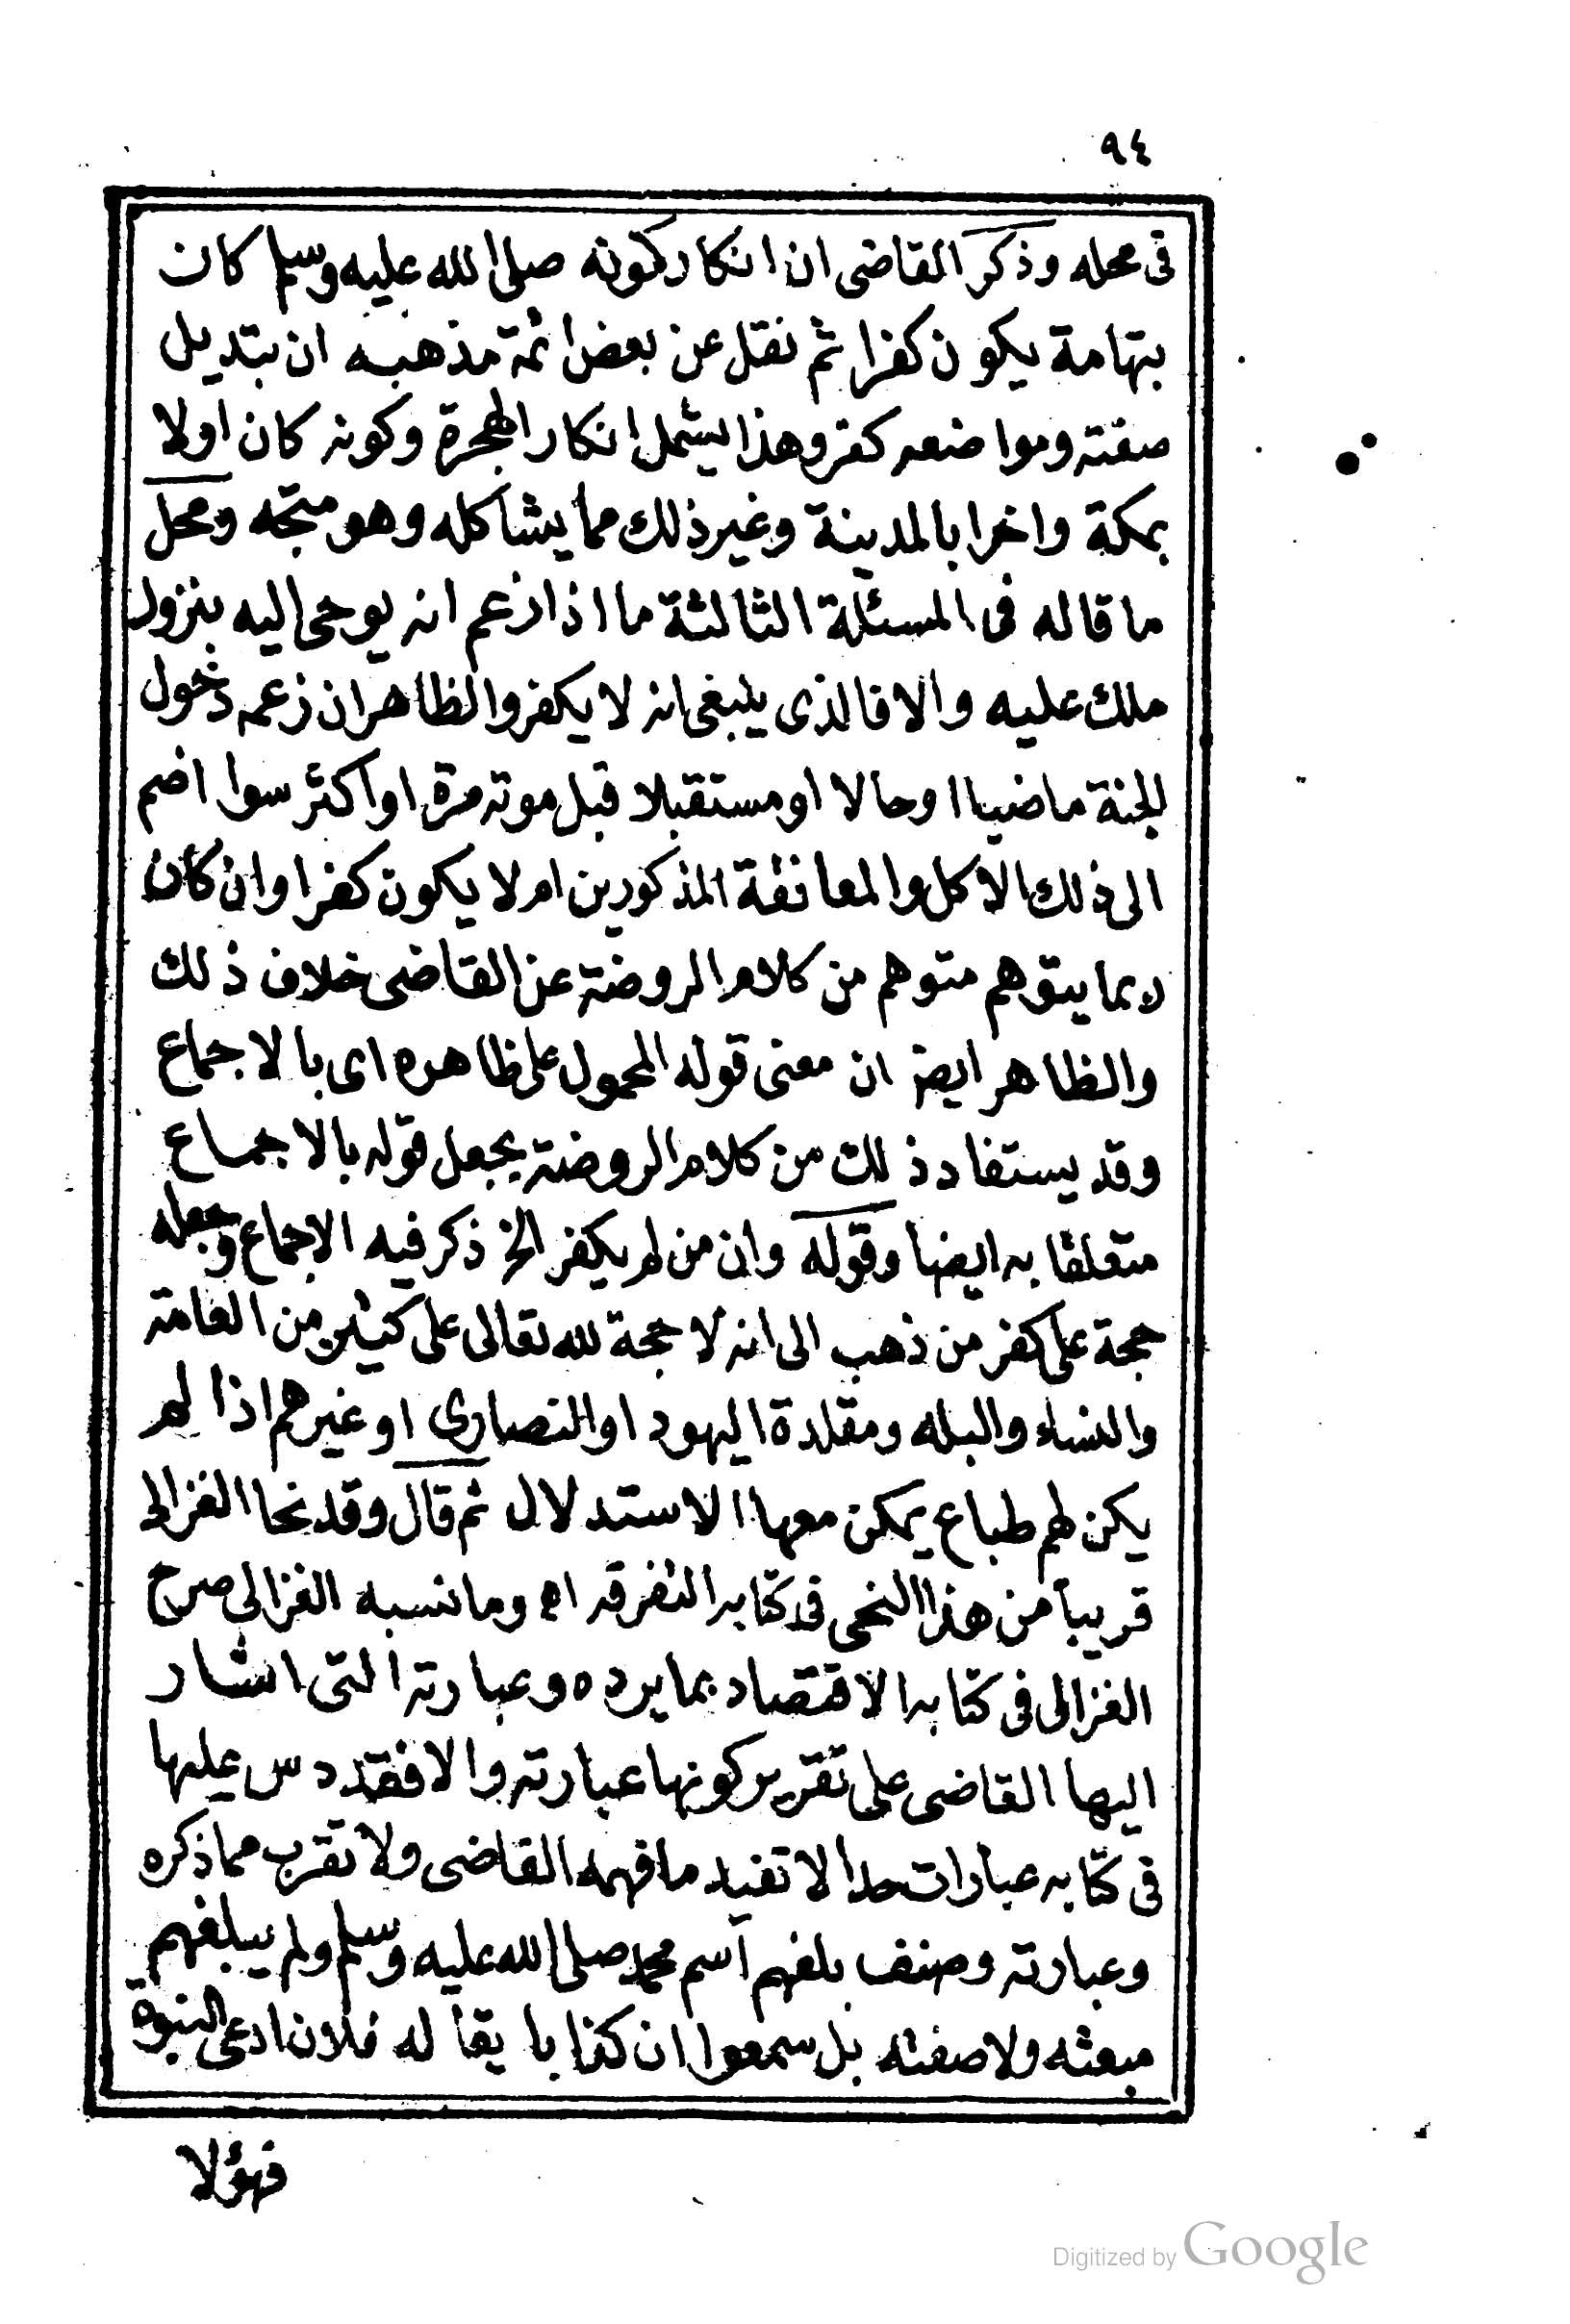 ٩٤
فى محله وذكر القاضى ان انكار كونه صلى الله عليه وسلم كان
بتهامة يكون كفرا ثم نقل عن بعض ائمة مذهبه ان بتديل
صفته ومواضعه كفر وهذا يشمل انكار الهجرة وكونه كان اولا
بمكة واخرا بالمدينة وغير ذلك مما يشاكله وهو متجه ومحل
ما قاله فى المسئلة الثالثة ما اذا زعم انه يوحى اليه بنزول
ملك عليه والا فالذى ينبغى انه لا يكفر والظاهر ان زعم دخول
الجنة ماضيا او حالا او مستقبلا قبل موته مرة او اكثر سوا اضم
الى ذلك الاكل والمعانقة المذكورين ام لا يكون كفرا وان كان
ربما يتوهم متوهم من كلام الروضة عن القاضى خلاف ذلك
والظاهر ايضا ان معنى قوله المحمول على ظاهره اى بالاجماع
وقد يستفاد ذلك من كلام الروضة بجعل قوله بالاجماع
متعلقا به ايضا وقوله وان من لم يكفر الخ ذكر فيه الاجماع وجعله
حجة على كفر من ذهب الى انه لا حجة لله تعالى على كثير من العامة
والنساء والبله ومقلدة اليهود او النصارى او غيرهم اذا لم
يكن لهم طباع يمكن معها الاستدلال ثم قال وقد نحا الغزالى
قريبا من هذا النحى فى كتابه التفرقه اه وما نسبه الغزالى صرح
الغزالى فى كتابه الاقتصاد بما يرده وعبارته التى اشار
اليها القاضى على تقرير كونها عبارته والا فقد دس عليها
فى كتابه عبارات لا تفيد ما فهمه القاضى ولا تقرب مما ذكره
وعبارته وصنف بلغهم اسم محمد صلى الله عليه وسلم ولم يبلغهم
مبعثه ولا صفته بل سمعوا ان كذابا يقال له فلان ادعى النبوة
فهؤلا
Digitized by Google